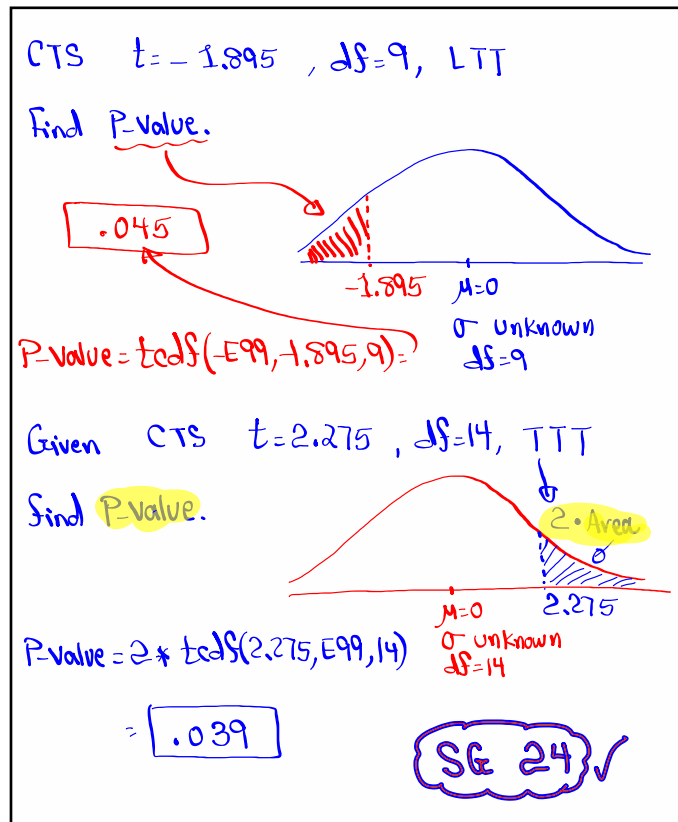 CTS t=-1.895, df=9, LTT
Find P-Value.
.045
-1.895 μ=0
σ unknown
df=9
P-Value=tcdf(-E99,-1.895,9)=
Given CTS t=2.275, df=14, TTT
find P-Value.
2•Area
μ=0 2.275
σ unknown
df=14
P-Value=2*tcdf(2.275,E99,14)
= .039
SG 24 ✓